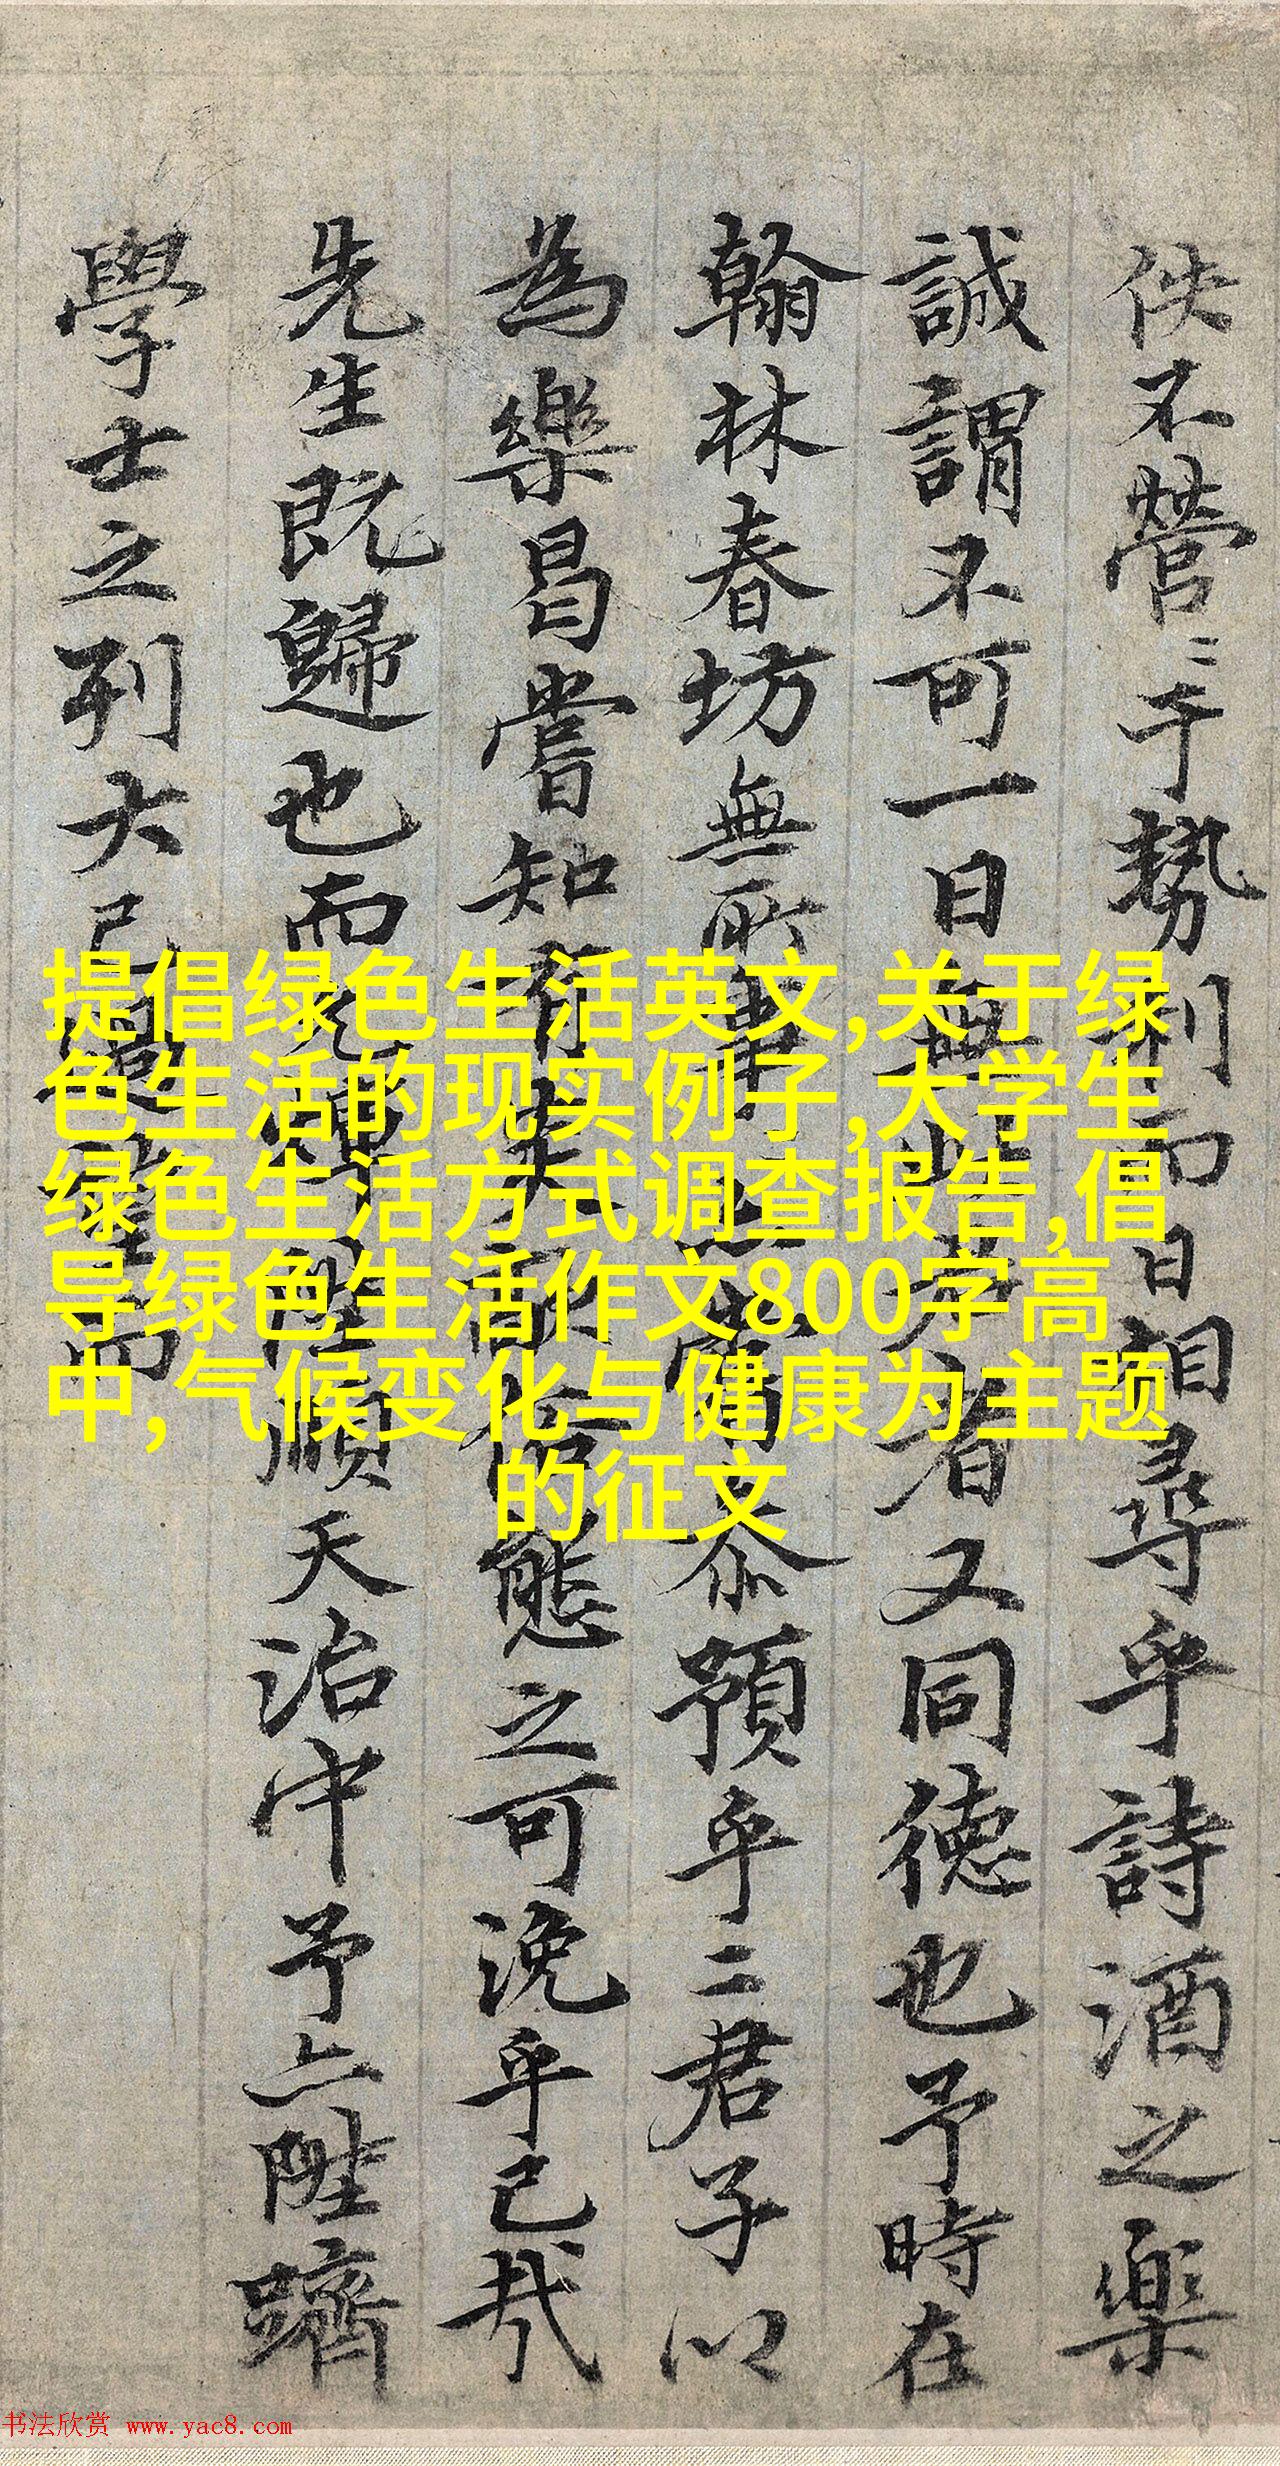 佚不營〻于勢利而日相尋乎詩酒之樂
誠謂不可一日無此者又同德也予時在
翰林春坊無所事二君子以
為樂曷嘗知有笑態之可浼乎已哉
先生既歸也而順天治中予亦陞躋
學士之列大已而
提倡绿色生活英文,关于绿
色生活的现实例子,大学生
绿色生活方式调查报告,倡
导绿色生活作文800字高
中,气候变化与健康为主题
的征文
书法欣赏 www.yac8.com